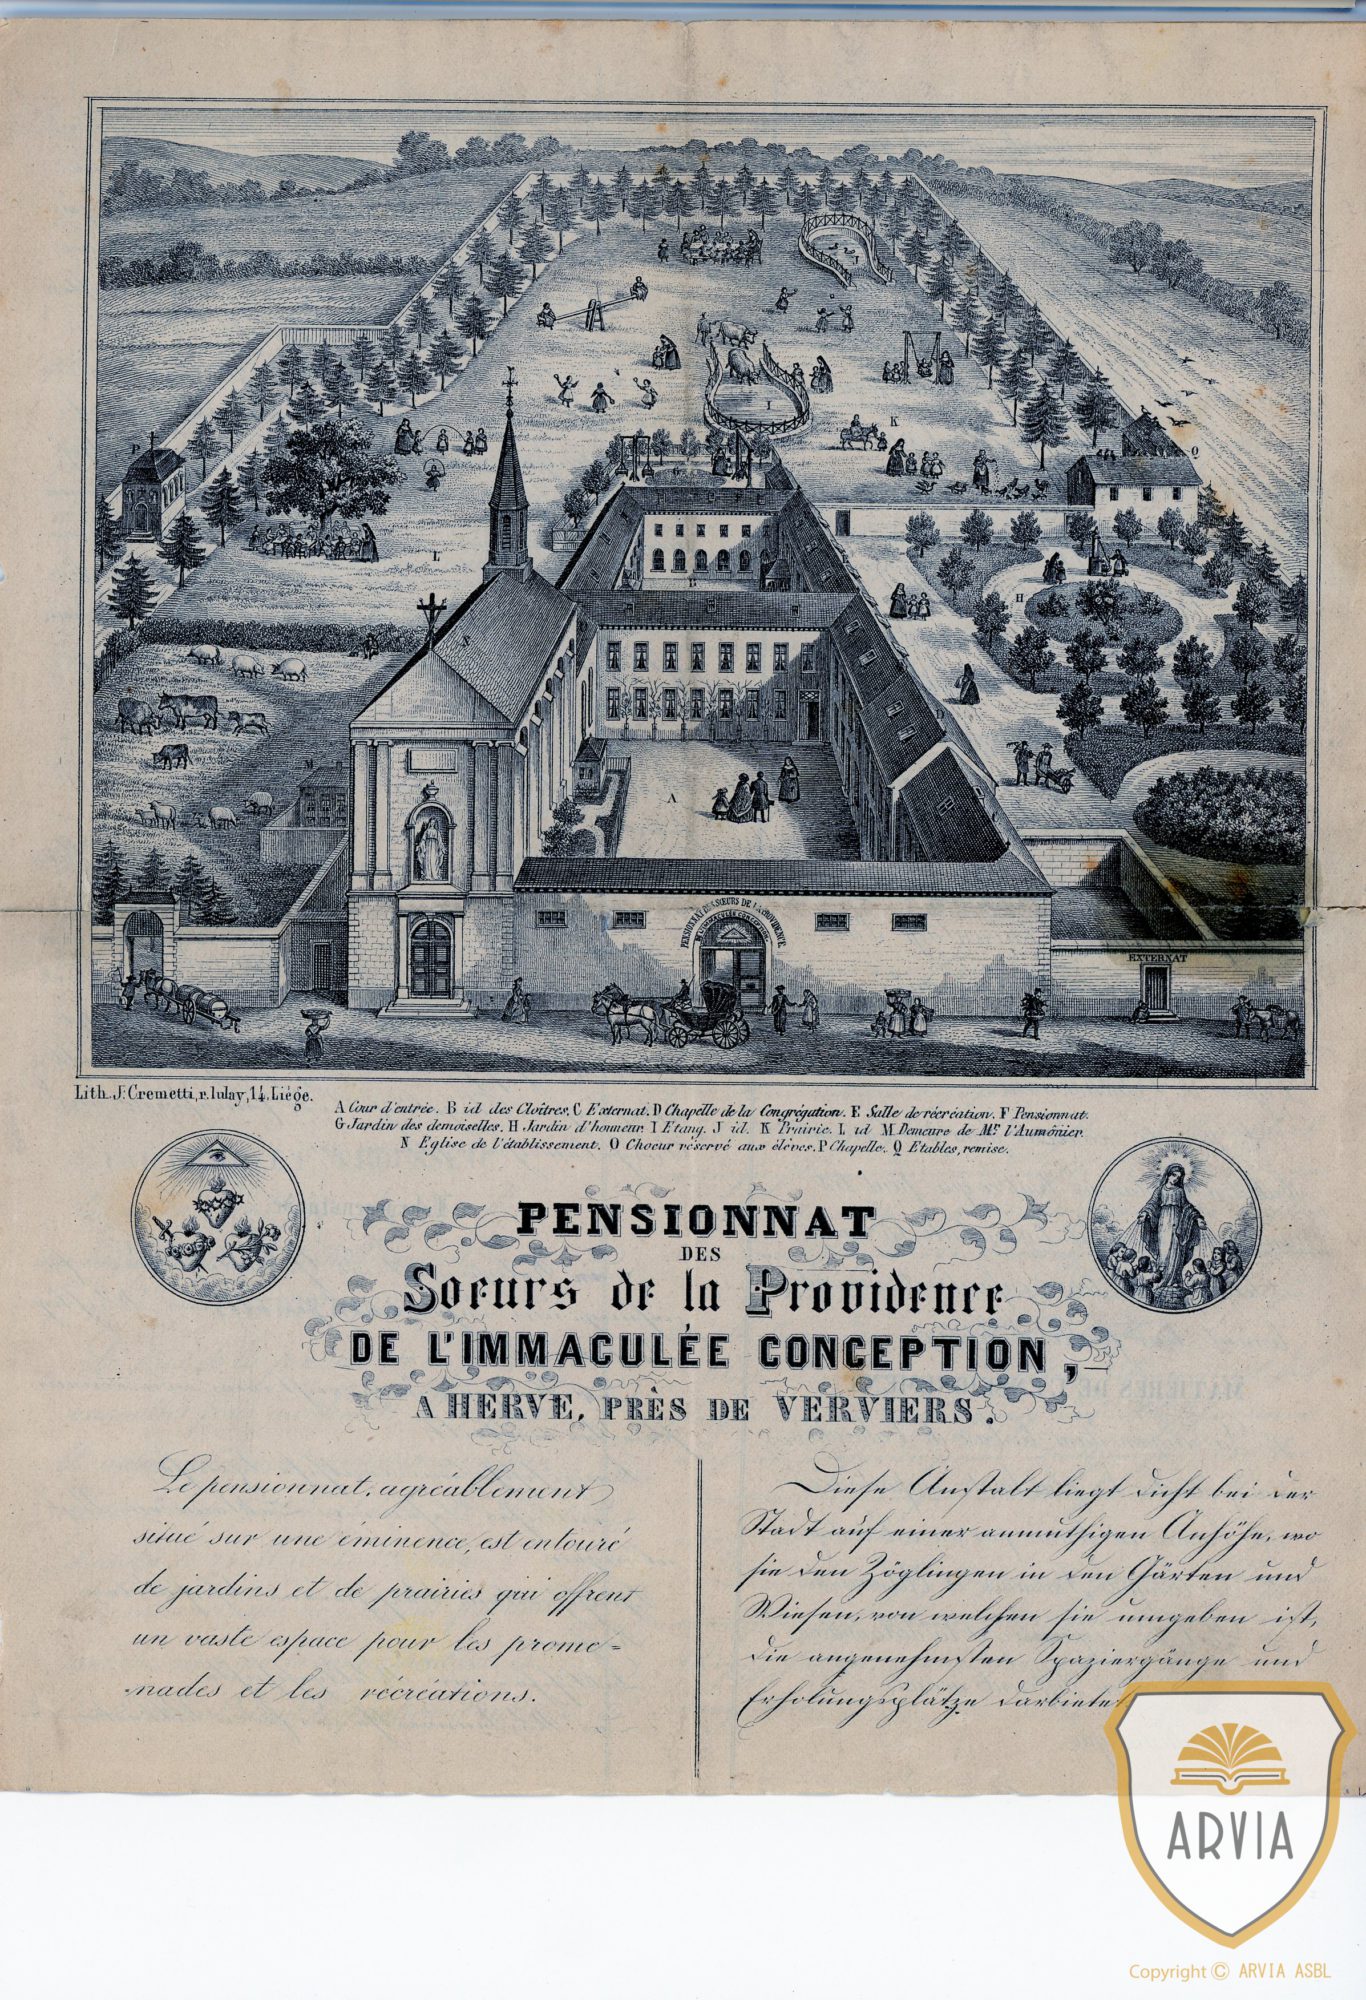 P
Q
K
I
G
L
H
S
B
D
M
A
C
PENSIONNAT DES SŒURS DE LA PROVIDENCE
DE L'IMMACULÉE CONCEPTION
EXTERNAT
Lith. J. Cremetti, r. lulay, 14. Liége.
A Cour d'entrée. B id des Cloîtres. C Externat. D Chapelle de la Congrégation. E Salle de récréation. F Pensionnat.
G Jardin des demoiselles. H Jardin d'honneur. I Etang. J id. K Prairie. L id M Demeure de Mr. l'Aumônier.
N Eglise de l'établissement. O Choeur réservé aux élèves. P Chapelle. Q Etables, remise.
PENSIONNAT
DES
Soeurs de la Providence
DE L'IMMACULÉE CONCEPTION,
A HERVE, PRÈS DE VERVIERS.
Le pensionnat, agréablement
situé sur une éminence, est entouré
de jardins et de prairies qui offrent
un vaste espace pour les prome=
=nades et les récréations.
Diese Anstalt liegt dicht bei der
Stadt auf einer anmuthigen Anhöhe, wo
sie den Zöglingen in den Gärten und
Wiesen, von welchen sie umgeben ist,
die angenehmsten Spaziergänge und
Erholungsplätze darbietet
ARVIA
Copyright © ARVIA ASBL